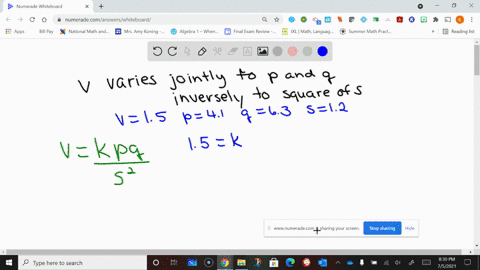 Numerade Whiteboard
numerade.com/answers/whiteboard/
Apps
Bill Pay
National Math and...
Mrs. Amy Koning -...
Algebra 1 – When...
Final Exam Review -...
IXL | Math, Languag...
Summer Math Practi...
Reading list
V varies jointly to p and q
inversely to square of s
V=1.5 p=4.1 q=6.3 s=1.2
V=kpq/s² 1.5=k
www.numerade.com is sharing your screen.
Stop sharing
Hide
Type here to search
8:30 PM
7/5/2021